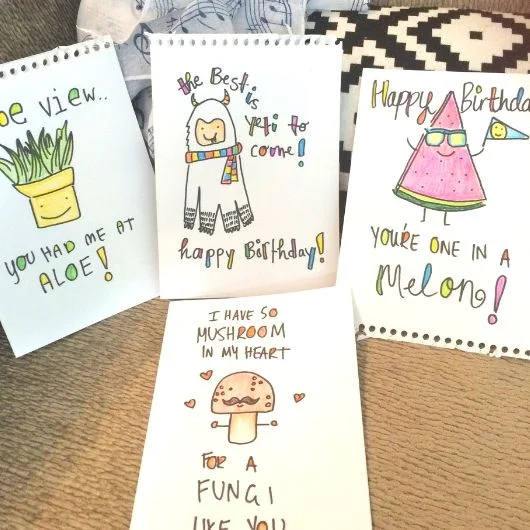 view..
YOU HAD ME AT
ALOE!
the Best
is
Yeti to
come!
happy Birthday!
Happy Birthda
YOU'RE ONE IN A
Melon!
I HAVE SO
MUSHROOM
IN MY HEART
FOR A
FUNGI
LIKE YOU